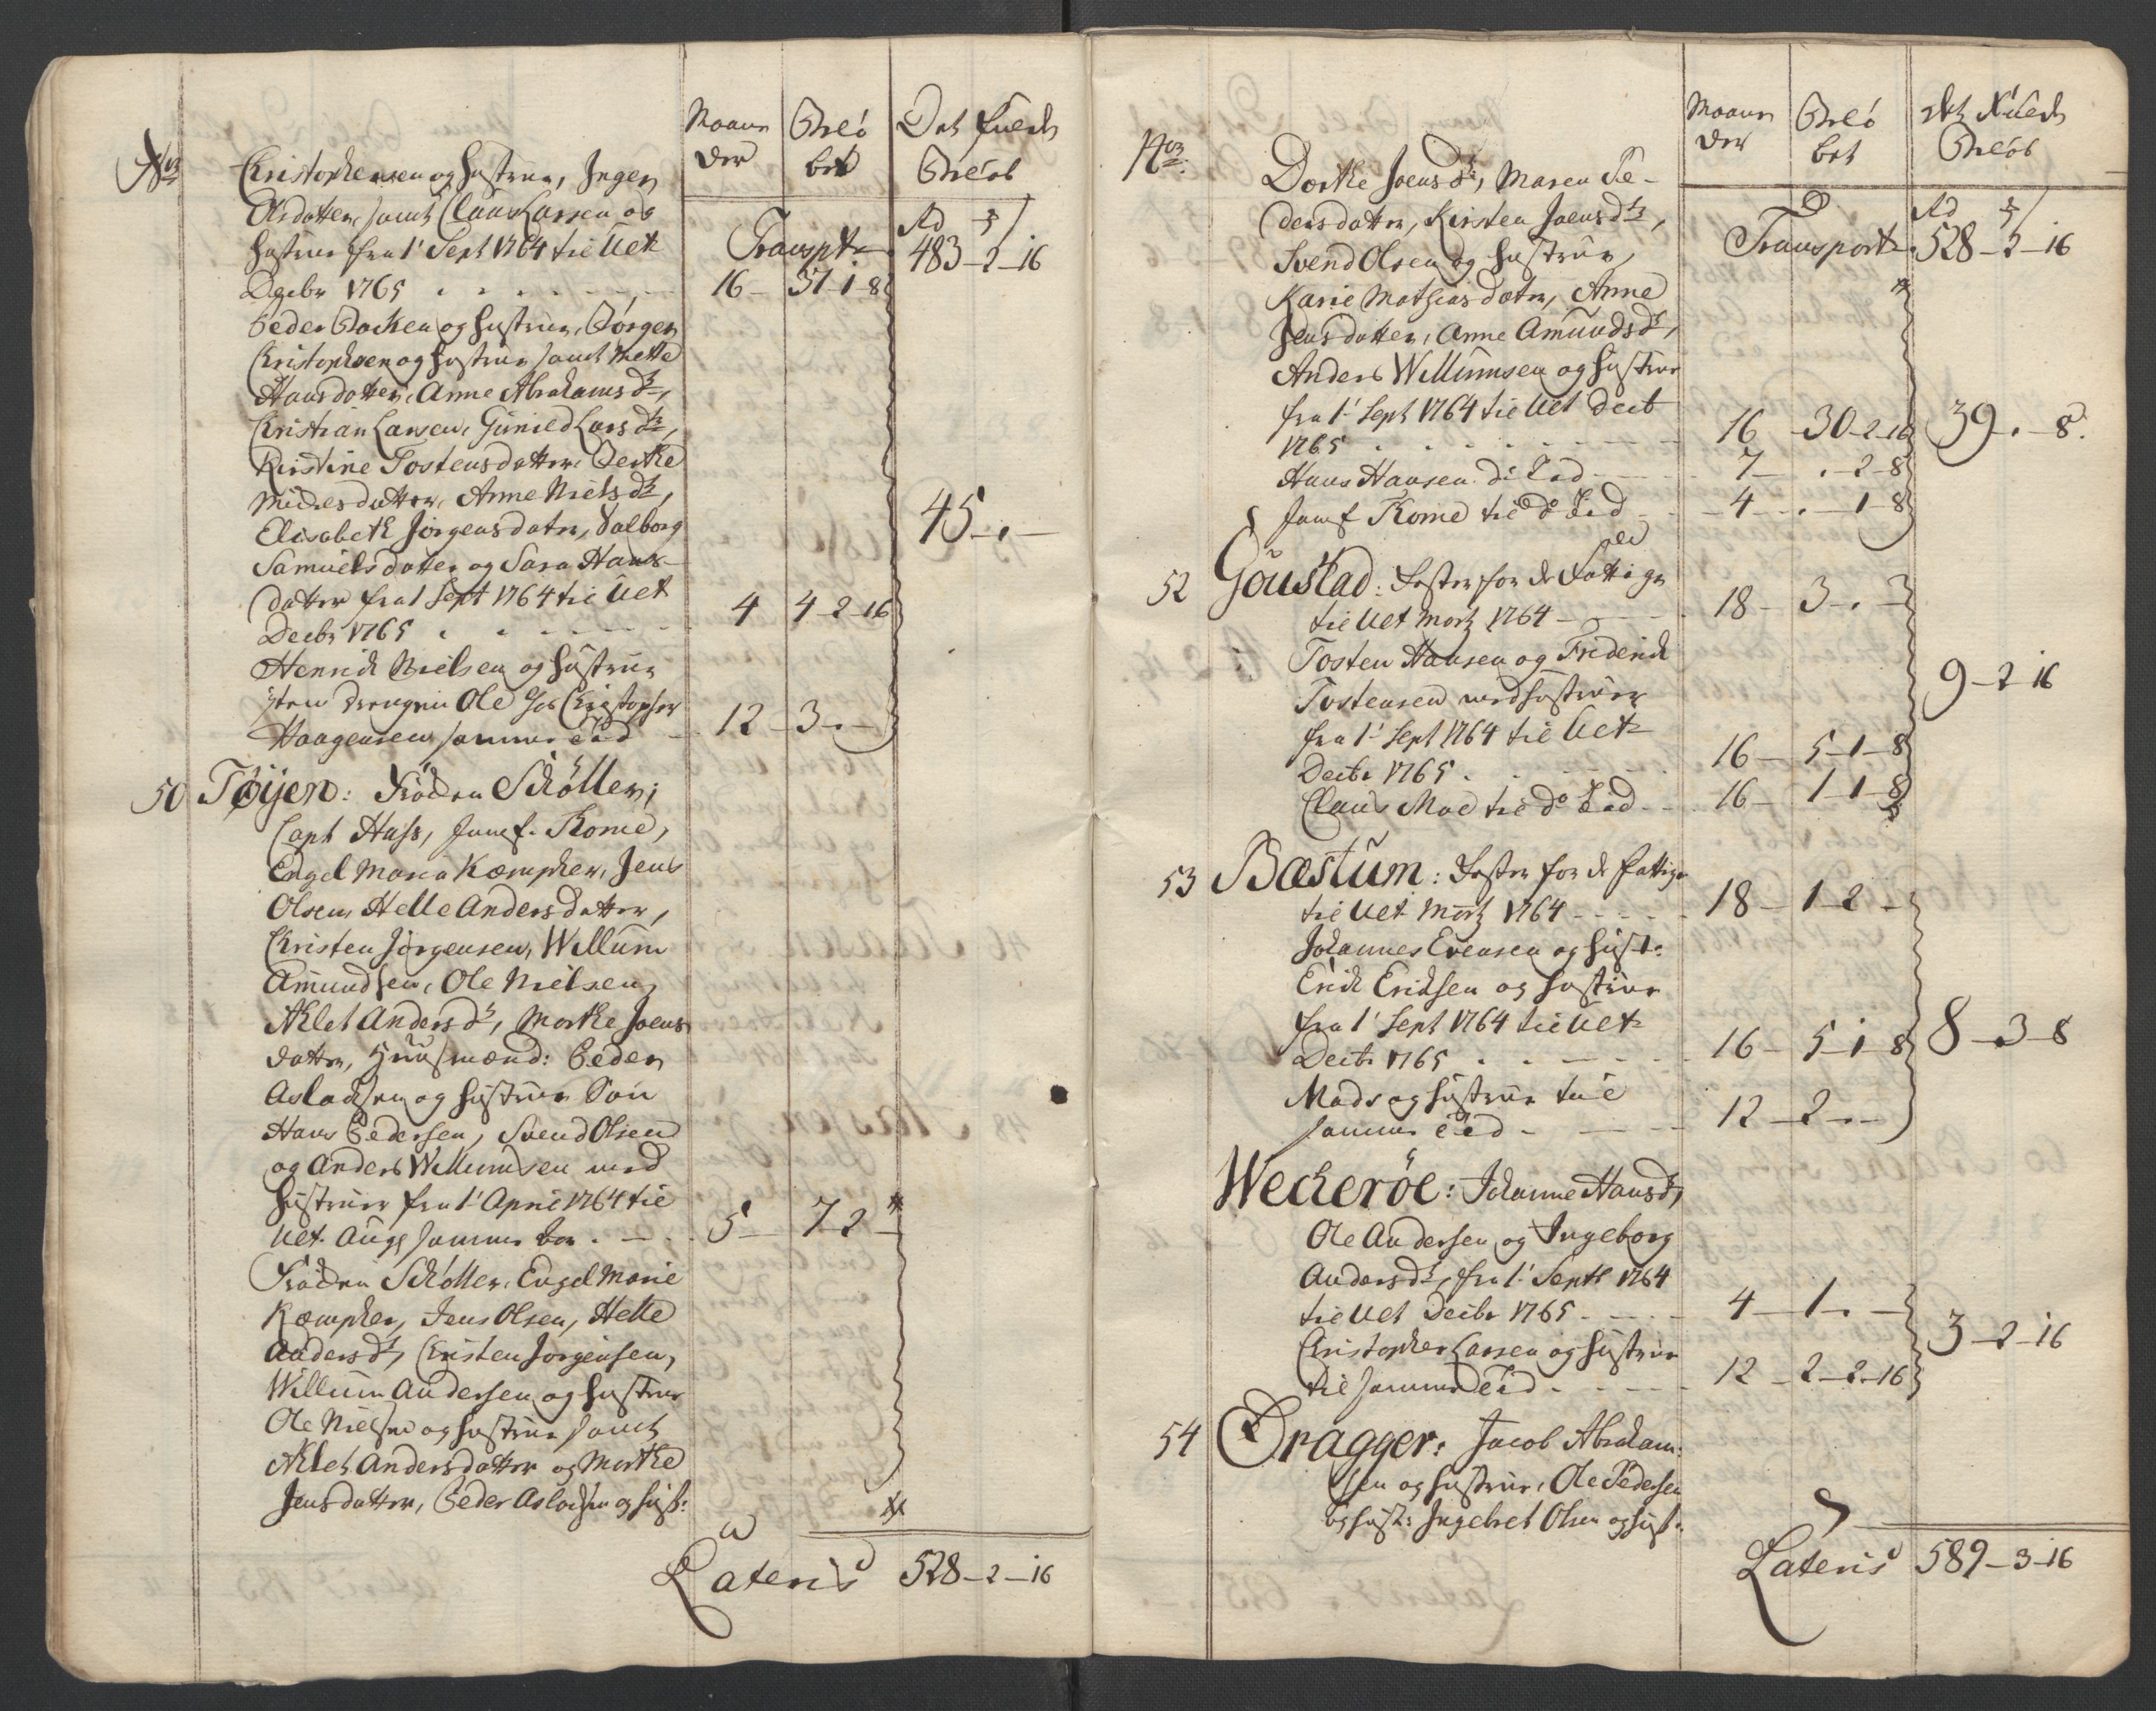 No
Maaneder
Beløbet
Det fulde Beløb
Christophersen og Hustrue, Inger
Olsdatter, samt Claus Larsen og
Hustrue fra 1' Sept 1764 til Ult
Decbr 1765
Transpt
Rd
483-2-16
16- 37-1-8
Peder Backen og Hustrue, Børger
Christophersen og Hustrue samt Mette
Hansdatter, Anne Abrahams dr,
Christian Larsen, Gunild Lars dr,
Kirstine Tostensdatter, Berthe
Michelsdatter, Anne Niels dr,
Elisabeth Jørgens datr, Valborg
Samuelsdatter og Sara Hans-
datter fra 1 Sept 1764 til Ult
Decbr 1765
4 4-2-16
45-.-
Henrich Nielsen og Hustrue
Item drengen Ole hos Christopher
Haagensen samme Tid
12-3-.-
50 Tøijen: Frøken Schøller,
Capt Hass, Jomf. Kome,
Engel Maria Kæmpher, Jens
Olsen, Helle Andersdatter,
Christen Jørgensen, Willum
Amundsen, Ole Nielsen,
Ahlet Anders dr, Marthe Joens
datter, Huusmænd: Peder
Aslachsen og Hustrue Søn
Hans Pedersen, Svend Olsen
og Anders Willumsen med
Hustruer fra 1' April 1764 til
Ult. Augs samme Aar
5- 7-2-
Frøken Schøller, Engel Marie
Kæmpher, Jens Olsen, Helle
Anders dr, Christen Jørgensen,
Willum Andersen og Hustrue
Ole Nielsen og Hustrue samt
Ahlet Andersdatter og Marthe
Jensdatter, Peder Aslachsen og Hust:
Lateris 528-2-16
No
Maaneder
Beløbet
Det fulde Beløb
Dorthe Joens dr, Maren Pe-
dersdatter, Kirsten Joens dr,
Svend Olsen og Hustrue,
Karie Mathias datr, Anne
Jensdatter, Anne Amunds dr,
Anders Willumsen og Hustrue
fra 1' Sept 1764 til Ult Decb
1765
Transport
Rd
528-2-16
16 -30-2-16
39-.-8.
Hans Hansen do Tid
7- .-2-8
Jomf Kome til do Tid
4- .-1-8
52 Goustad: Læster for de Fattige
til Ult Martz 1764
18- 3-.-
Tosten Hansen og Friderich
Tostensen med Hustruer
fra 1' Sept 1764 til Ult
Decbr 1765
16- 5-1-8
9-2-16
Claus Moe til do Tid
16- 1-1-8
53 Bæstum: Læster for de Fattige
til Ult Martz 1764
18- 1-2-
Johannes Evensen og Hust:
Erich Erichsen og Hustrue
fra 1' Sept 1764 til Ult
Decbr 1765
16- 5-1-8
8-3-8
Mads og Hustrue til
samme Tid
12-2-.-
Weckerøe: Johanne Hans dr,
Ole Andersen og Ingeborg
Anders dr, fra 1' Septr 1764
til Ult Decbr 1765
4-1-.-
Christopher Larsen og Hustrue
til samme Tid
12-2-2-16
3-2-16
54 Dragger: Jacob Abraham-
sen og Hustrue, Ole Pedersen
og Hust: Ingebret Olsen og Hust:
Lateris 589-3-16